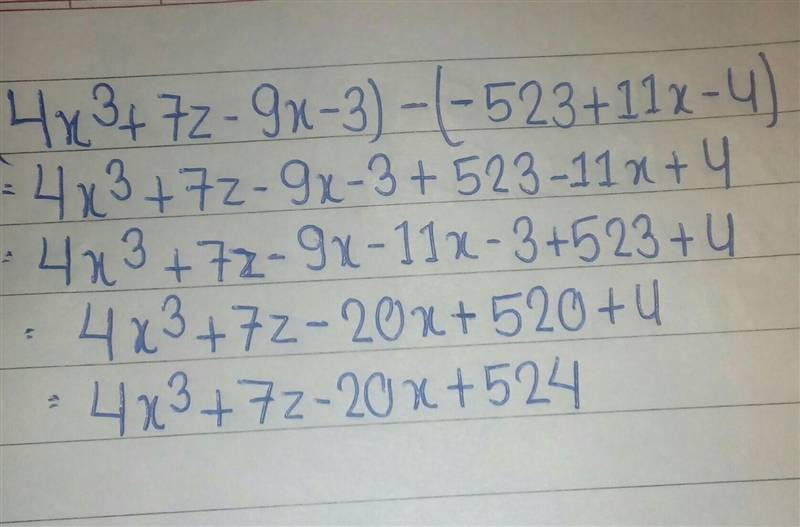 4x³+7z-9x-3)-(-523+11x-4)
=4x³+7z-9x-3+523-11x+4
=4x³+7z-9x-11x-3+523+4
=4x³+7z-20x+520+4
=4x³+7z-20x+524